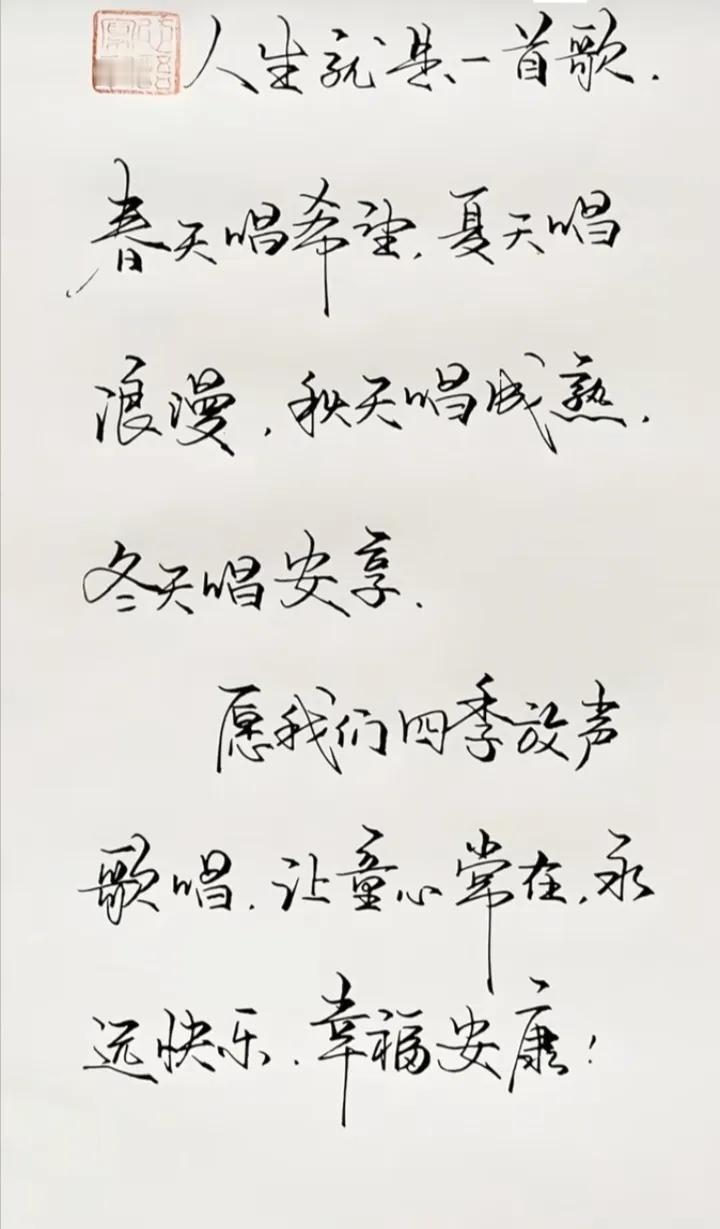 人生就是一首歌.
春天唱希望,夏天唱
浪漫,秋天唱成熟,
冬天唱安享.
愿我们四季放声
歌唱.让童心常在,永
远快乐.幸福安康!